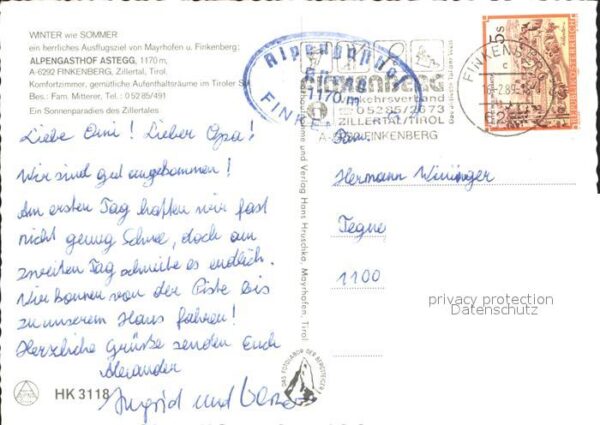 WINTER wie SOMMER
ein herrliches Ausflugsziel von Mayrhofen u. Finkenberg:
ALPENGASTHOF ASTEGG, 1170 m,
A-6292 FINKENBERG, Zillertal, Tirol.
Komfortzimmer, gemütliche Aufenthaltsräume im Tiroler Stil
Bes.: Fam. Mitterer, Tel.: 0 52 85/491
Ein Sonnenparadies des Zillertales
Liebe Omi! Lieber Opa!
Wir sind gut angekommen!
Am ersten Tag hatten wir fast
nicht genug Schnee, doch am
zweiten Tag schneite es endlich.
Wir können von der Piste bis
zu unserem Haus fahren!
Herzliche Grüße senden Euch
Alexander
Ingrid und
HK 3118
Verlag Hans Hruschka, Mayrhofen, Tirol
DAS EDELKORN DER BERGSTEIGER
Alpengasthof
1170 m
FINKENBERG
Verkehrsverband
05285/2673
ZILLERTAL/TIROL
A-6292 FINKENBERG
FINKENBERG
5s
Fam.
Hermann
1100
privacy protection
Datenschutz